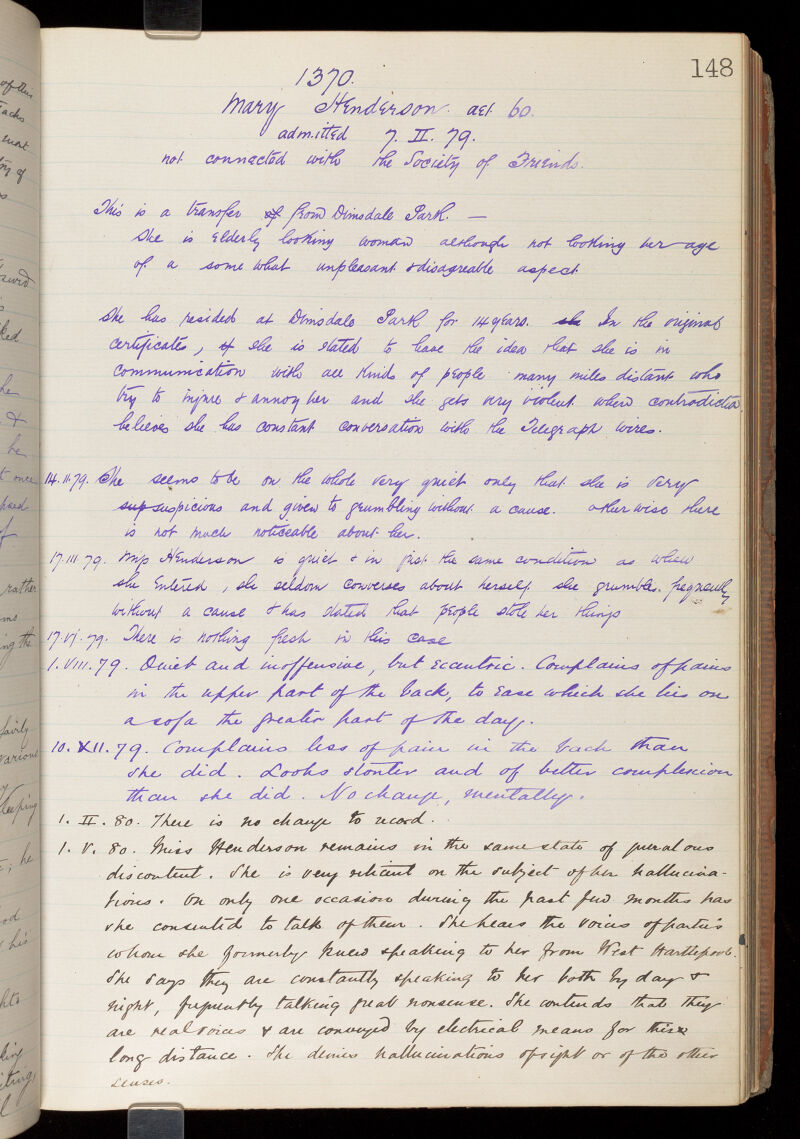 148
1370.
Mary Henderson. aet. 60.
admitted 7. II. 79.
not connected with the Society of Friends.
This is a transfer of from Dinsdale Park. —
She is Elderly looking woman although not looking her age
of a some what unpleasant & disagreable aspect
She has resided at Dinsdale Park for 14 years. she In the original
certificates, of she is stated to have the idea that she is in
communication with all kinds of people many miles distant who
try to injure & annoy her and she gets very violent when contradicted.
believes she has constant conversation with the Telegraph wires.
14.II.79. She seems to be on the whole very quiet only that she is very
sup suspicious and given to grumbling without a cause. otherwise there
is not much noticeable about her.
17.III.79. Miss Henderson is quiet & in just the same condition as when
she Entered, she seldom converses about herself. she grumbles frequently
without a cause & has stated that people stole her things
17.VI.79. There is nothing fresh in this case
1.VIII.79. Quiet and inoffensive, but Eccentric. Complains of pains
in the upper part of the back, to ease which she lies on
a sofa the greater part of the day.
10.XII.79. Complains less of pain in the back than
she did. Looks stouter and of better complexion
than she did. No change, mentally.
1. II. 80. There is no change to record.
1. V. 80. Miss Henderson remains in the same state of querulous
discontent. She is very reticent on the subject of her hallucina-
tions. On only one occasion during the past few months has
she consented to talk of them. She hears the voices of parties
whom she formerly knew speaking to her from West Hartlepool.
She says they are constantly speaking to her both by day &
night, frequently talking great nonsense. She contends that they
are real voices & are conveyed by electrical means for this
long distance. She denies hallucinations of sight or of the other
senses.